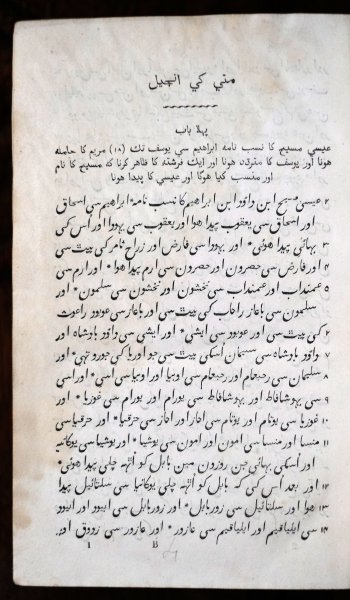 متي کي انجيل
پہلا باب
عيسيٰ مسيح کا نسب نامہ ابراهيم سي يوسف تك (١٨) مريم کا حاملہ
هونا اور يوسف کا هونا اور ايك فرشتہ کا ظاهر کرنا کہ مسيح کا نام
اور منصب کيا هوگا اور عيسيٰ کا پيدا هونا
٢ عيسيٰ مسيح ابن داؤد ابن ابراهيم کا نسب نامہ * ابراهيم سي اسحاق
اور اسحاق سي يعقوب پيدا هوا اور يعقوب سي يهودا اور اس کي
٣ بهائي پيدا هوئي * اور يهودا سي فارض اور زراح نام کي پيٹ سي
٤ اور فارض سي حصرون اور حصرون سي ارم پيدا هوا * اور ارم سي
٥ عمنداب اور عمنداب سي نخشون اور نخشون سي سلمون * اور
سلمون سي باعاز راخاب کي پيٹ سي اور باعاز سي عوبود راعوث
٦ کي پيٹ سي اور عوبود سي ايشي * اور ايشي سي داؤد بادشاه اور
٧ داؤد بادشاه سي سليمان اسکي پيٹ سي جو اوريا کي جورو تهي * اور
٨ سليمان سي رحبعام اور رحبعام سي اوبيا اور اوبيا سي اسي * اور اسي
٩ سي يهوشافاط اور يهوشافاط سي يورام اور يورام سي غوزيا * اور
١٠ غوزيا سي يوتام اور يوتام سي اخاز اور اخاز سي حزقيا * اور حزقيا سي
١١ منسا اور منسا سي امون اور امون سي يوشيا * اور يوشيا سي يوکانيہ
اور اسکي بهائي جن روزون مين بابل کو اٹهہ چلي پيدا هوئي *
١٢ اور بعد اس کي کہ بابل کو اٹهہ چلي يوکانيا سي سلتائيل پيدا
١٣ هوا اور سلتائيل سي زوربابل * اور زوربابل سي ابيود اور ابيود
١٤ سي ايلياقيم اور ايلياقيم سي عازور * اور عازور سي زودق اور
I B